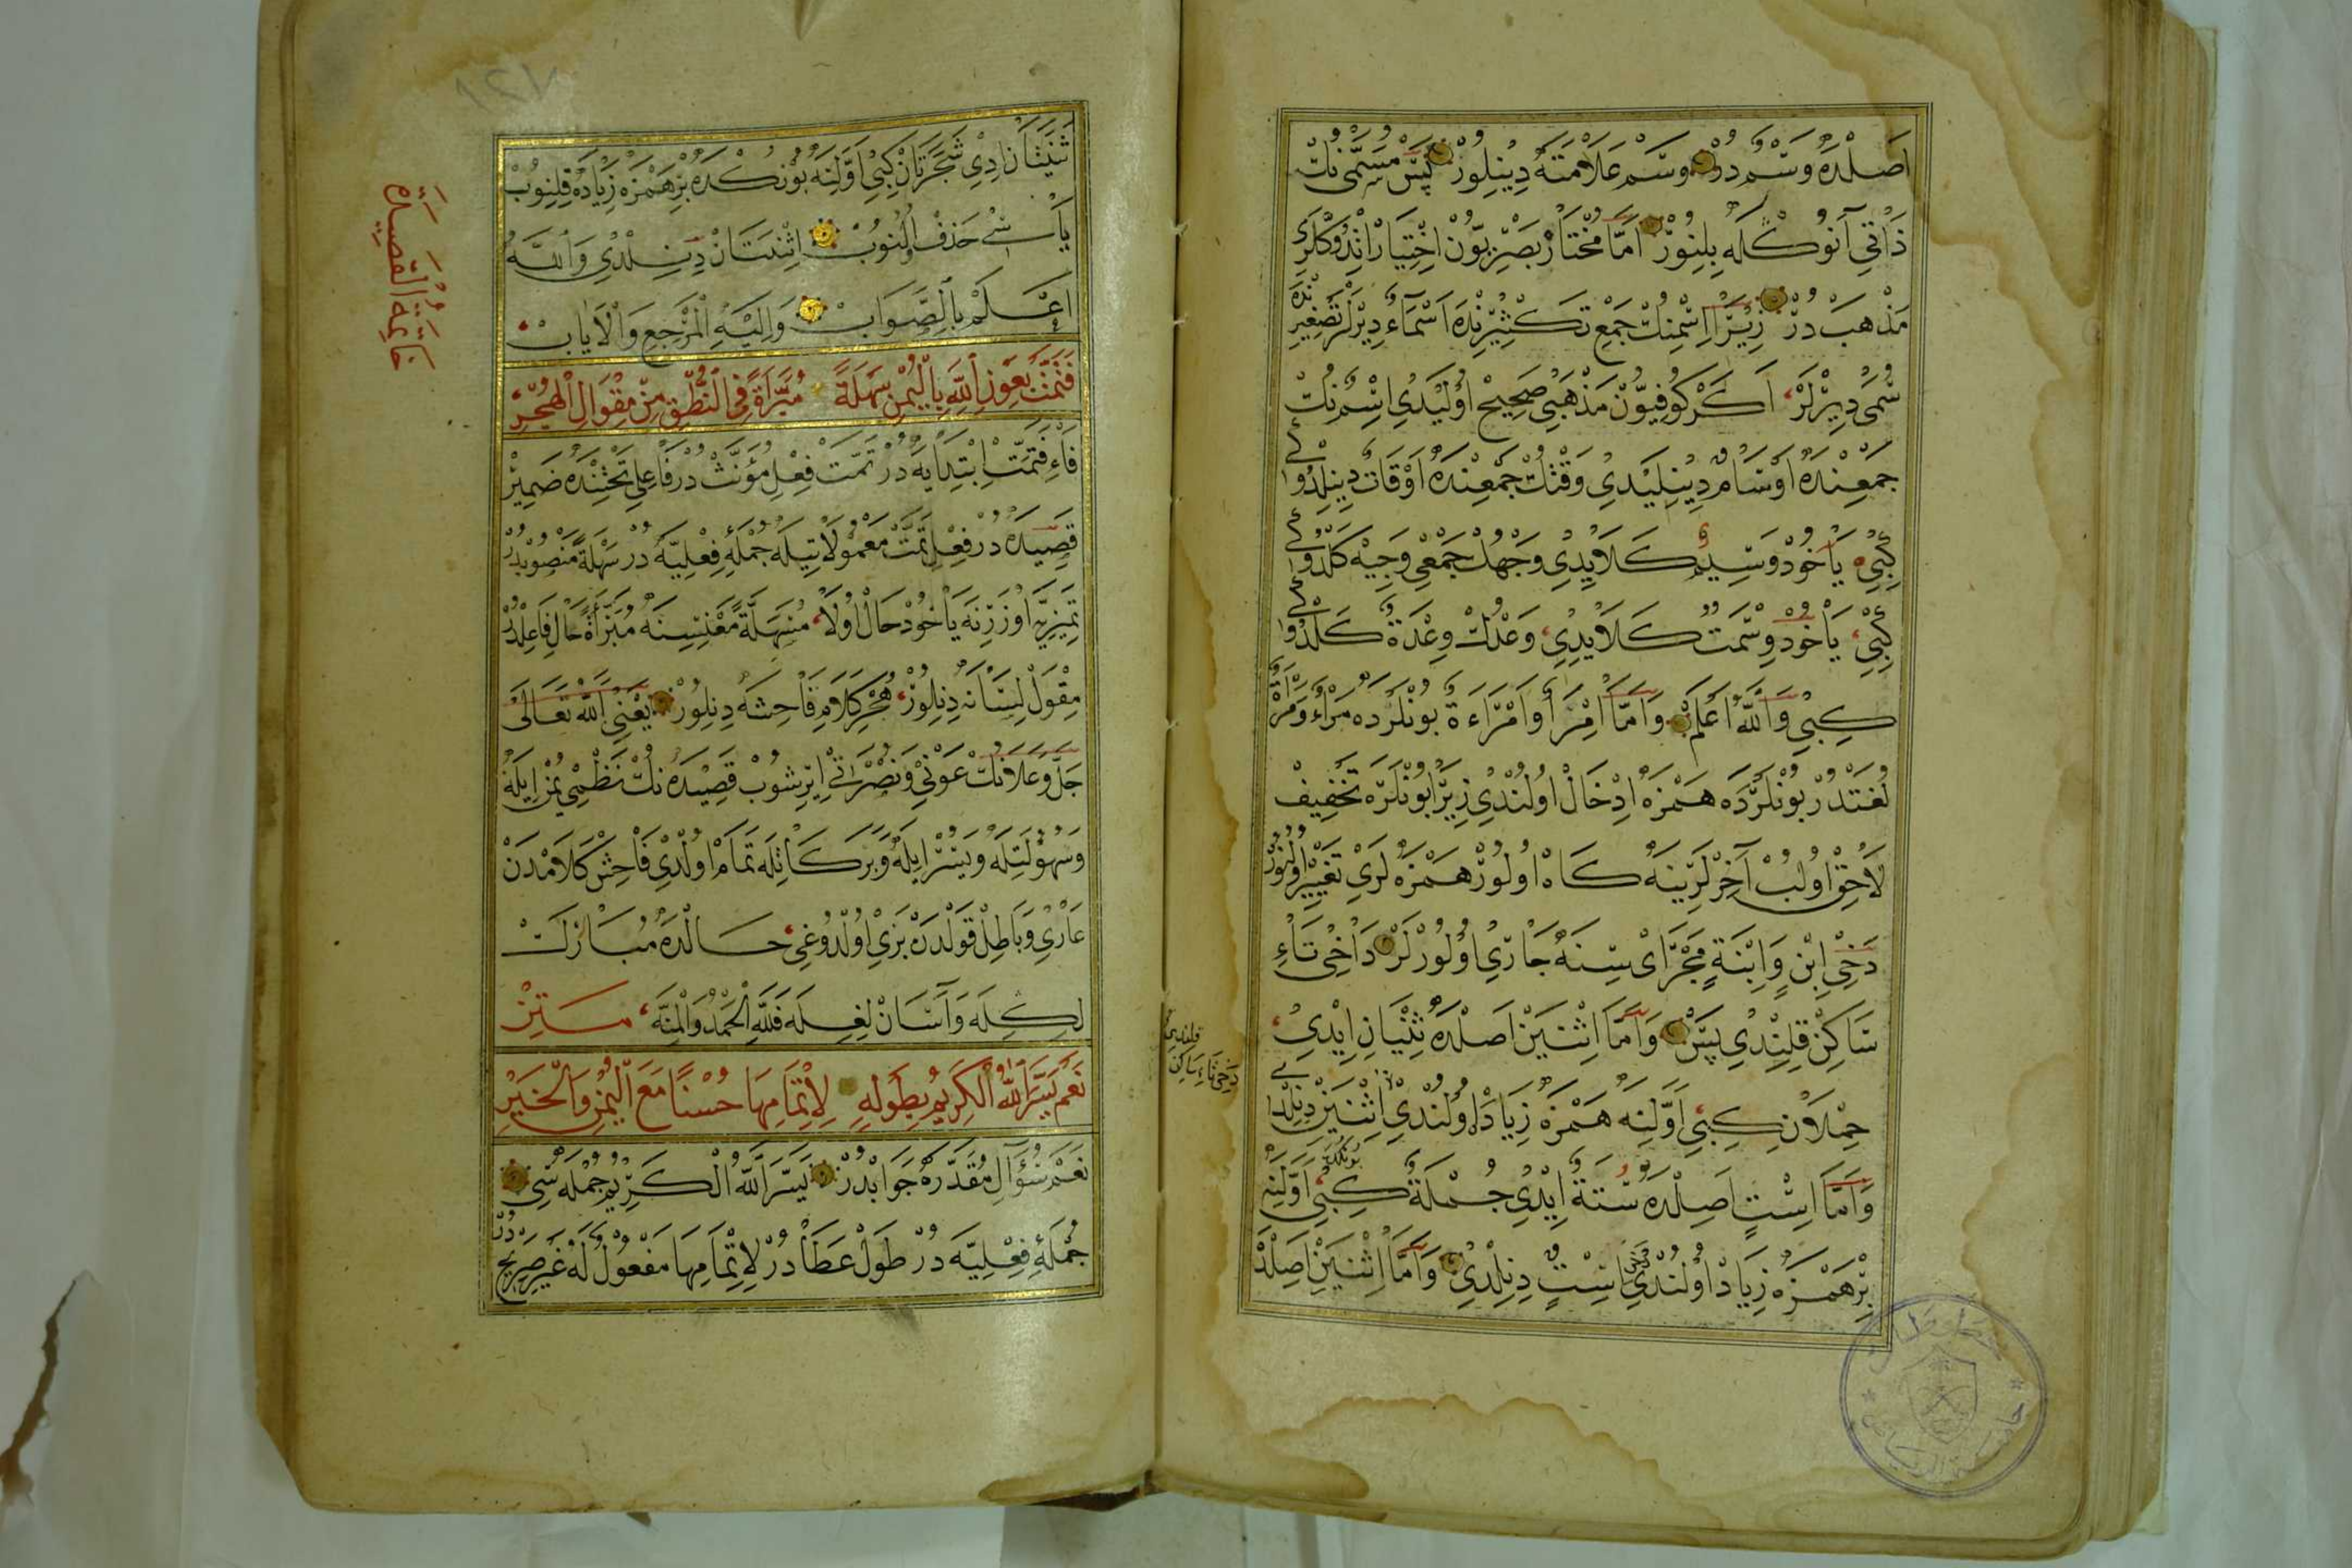 اَصْلْدَه وَسْمٌ دُرْ وَسْم عَلَامَتَه دِيْنِلُورْ پَسْ مُسَمَّى نُكْ
ذَاتِي آنُوكْلَه بِلِنُورْ اَمَّا مُخْتَارْ بَصْرِيّوُنْ اِخْتِيَارْ اِتْدُوكْلَرِي
مَذْهَبْ دُرْ زِيْرَا اِسْمِنُكْ جَمْعِ تَكْسِيْرِنْدَه اَسْمَاءٌ دِيْرْلَرْ تَصْغِيرِنْدَه
سُمَىٌّ دِيْرْلَرْ، اَكَرْ كُوفِيّوُنْ مَذْهَبِي صَحِيحْ اُولَيْدِي اِسْمُ نُكْ
جَمْعِنْدَه اَوْسَامٌ دِيْنِلَيْدِي وَقْتُكْ جَمْعِنْدَه اَوْقَاتٌ دِيْنِلْدُوكِي
كِبِي، يَاخُودْ وَسِيْمٌ كَلَايْدِي وَجْهُكْ جَمْعِي وَجِيْه كَلْدُوكِي
كِبِي، يَاخُودْ وِسْمَتْ كَلَايْدِي، وَعْدُكْ وِعْدَةٌ كَلْدُوكِي
كِبِي وَاللّٰهُ اَعْلَمْ وَاَمَّا اِمْرَأ وَاَمْرَاءَةٌ بُونْلَرْدَه مَرْاءٌ وَمَرْاَةٌ
لُغَتْدُرْ بُونْلَرْدَه هَمْزَه اِدْخَالْ اُولُنْدِي زِيْرَا بُونْلَرَه تَخْفِيفْ
لَاحِقْ اُولُبْ آخِرْلَرِيْنَه كَاهْ اُولُورْ هَمْزَه لَرِي تَغْيِيْر اُولُنُورْ
دَخِي اِبْنٍ وَاِبْنَةٍ مَجْرَاى سِنَه جَارِي اُولُورْلَرْ دَاخِي تَاءِ
سَاكِنْ قِلِنْدِي پَسْ وَاَمَّا اِثْنَيْنْ اَصْلْدَه ثِنْيَانِ اِيْدِي،
حِمْلَانِ كِبِي اَوَّلِنَه هَمْزَه زِيَادَه اُولُنْدِي اِثْنَيْنْ دِنِلْدِي
وَاَمَّا اِسْتٍ اَصِلْدَه سُتَةٌ اِيْدِي جُمْلَةٌ كِبِي، بُونُكْدَه اَوَّلِنَه
بِرْ هَمْزَه زِيَادْ اُولُنْدِي اِسْتٌ دِنِلْدِي وَاَمَّا اِثْنَتَيْنْ اَصِلْدَه
قلندى
دخى تاء ساكن
ثَنَتَانْ اِدِي شَجَرَتَانْ كِبِي اَوَّلِنَه بُونُكْدَه بِرْ هَمْزَه زِيَادَه قِلِنُوبْ
يَاسِى حَذْف اُولُنُوبْ اِثْنَتَانْ دِيْنِلْدِي وَاللّٰهُ
اَعْلَمْ بِالصَّوَابْ وَاِلَيْهِ الْمَرْجِعِ وَالْاٰيَابْ
فَتَمَّتْ بِعَوْنِ اللّٰهِ بِالْيُمْنِ سَهْلَةً مُبَرَّاَةً فِي النُّطْقِ مِنْ مِقْوَالِ الْهُجْرِ
فَاءِ فَتَمَّتْ اِبْتِدَايِيَّه دُرْ تَمَّتْ فِعْلِ مُؤَنَّثْ دُرْ فَاعِلِي تَحْتِنْدَه ضَمِيرْ
قَصِيدَه دُرْ فِعْلِ تَمَّتْ مَعْمُولَاتِيلَه جُمْلَهٔ فِعْلِيَّه دُرْ سَهْلَةً مَنْصُوبْدُرْ
تَمِيْزِيَّه اُوزَرِنَه يَاخُودْ حَالْ اُولَا، مُسَهَّلَةً مَعْنِسِنَه مُبَرَّأَةً حَالِ فَاعِلْدُرْ
مِقْوَلْ لِسَانَه دِنِلُورْ، هُجْرِ كَلَامِ فَاحِشَه دِنِلُورْ يَعْنِي اللّٰه تَعَالَى
جَلَّ وَعَلَا نُكْ عَوْنِي وَنُصْرَاتِي اِيْرِشُوبْ قَصِيدَه نُكْ نَظْمِي يُمْنْ اِيْلَه
وَسُهُولَتِلَه وَيُسْرْ اِيلَه وَبَرَكَاتِلَه تَمَامْ اُولْدِي فَاحِشْ كَلَامْدَنْ
عَارِي وَبَاطِلْ قَوْلْدَنْ بَرِي اُولْدُوغِي، حَالْدَه مُبَارَكْ
لِكِلَه وَآسَانْ لِغِلَه فَلِلّٰهِ الْحَمْدُ وَالْمِنَّه، مَتِنْ
نَعَمْ يَسَّرَ اللّٰهُ الْكَرِيمُ بِطَوْلِهِ لِاِتْمَامِهَا حُسْنًا مَعَ الْيُمْنِ وَالْخَيْرِ
نَعَمْ سُؤَالِ مُقَدَّرَه جَوَابْدُرْ يَسَّرَ اللّٰهُ الْكَرِيمُ جُمْلَه سِي
جُمْلَهٔ فِعْلِيَّه دُرْ طَوْلْ عَطَا دُرْ لِاِتْمَامِهَا مَفْعُولٌ لَهُ غَيْرِ صَرِيحْ دُرْ
خَاتِمَةُ الْقَصِيدَه